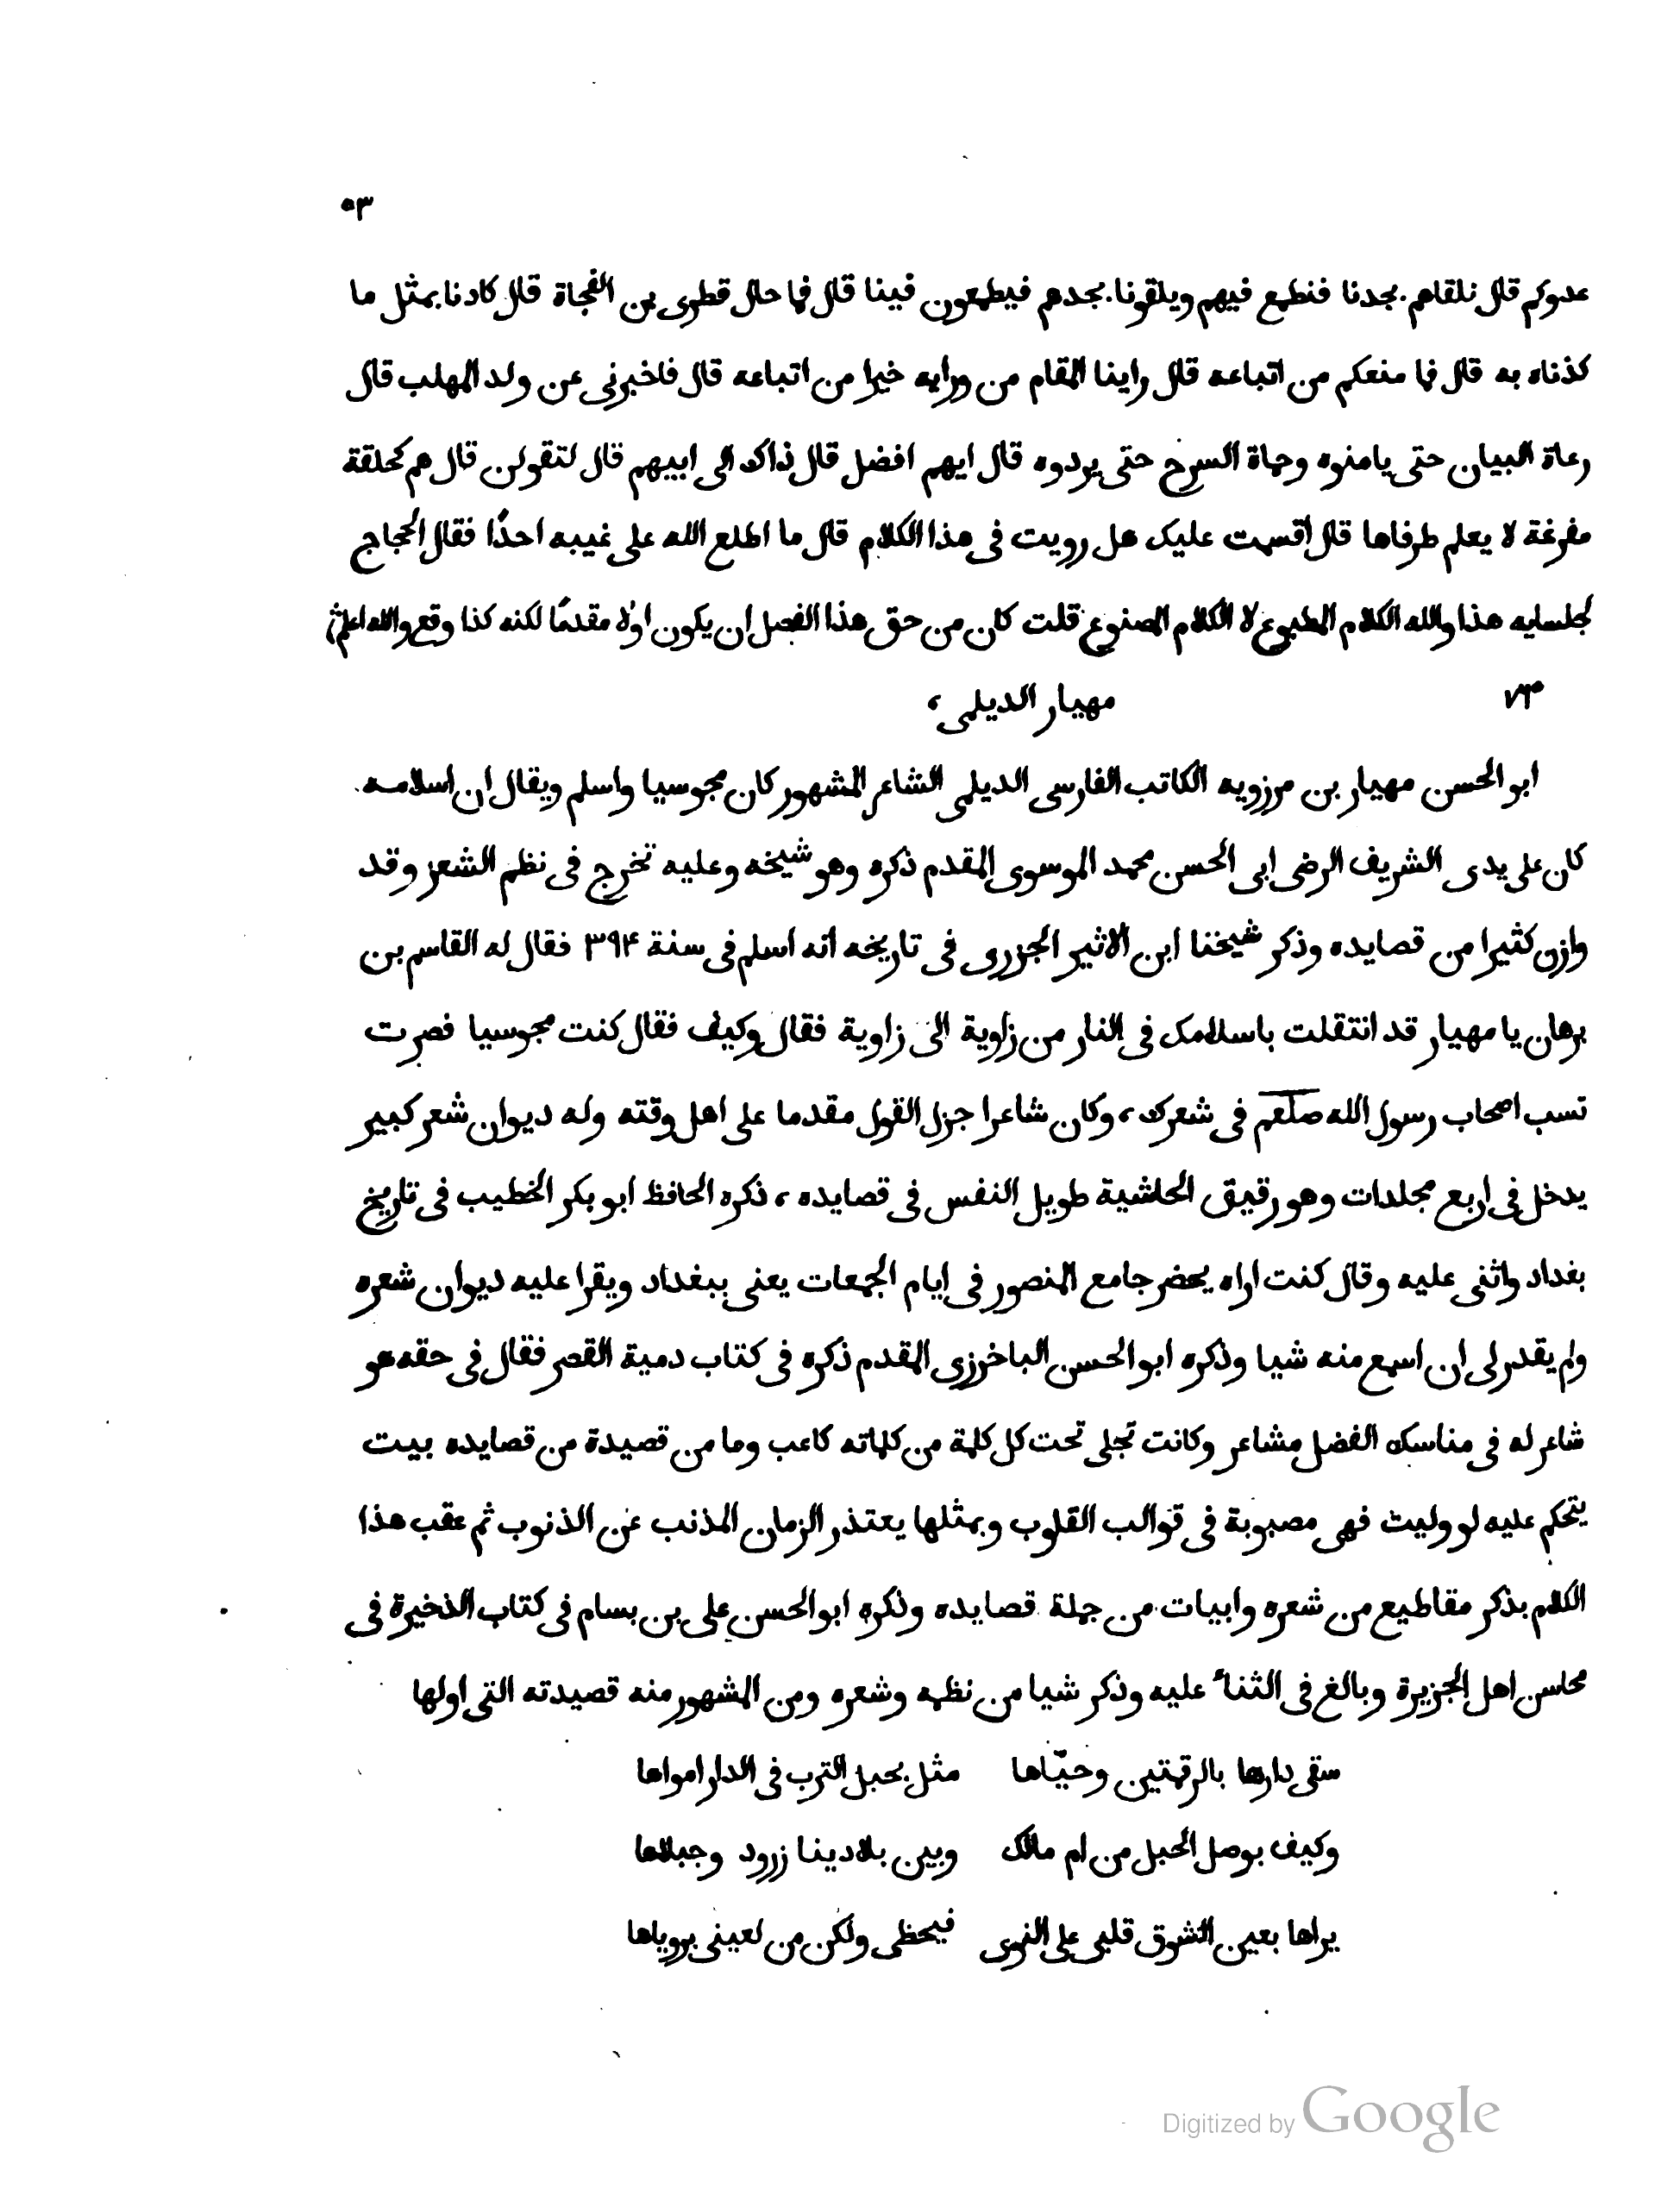 ٥٣
عدوكم قال نلقاهم بجدنا فنطمع فيهم ويلقونا بجدهم فيطمعون فينا قال فما حال قطرى بن الفجاة قال كادنا بمثل ما
كذناه به قال فما منعكم من اتباعه قال راينا المقام من ورايه خيرا من اتباعه قال فاخبرنى عن ولد المهلب قال
رعاة البيان حتى يامنوه وحماة السرح حتى يردوه قال ايهم افضل قال ذاك الى ابيهم قال لتقولن قال هم كحلقة
مفرغة لا يعلم طرفاها قال اقسمت عليك هل رويت فى هذا الكلام قال ما اطلع الله على غيبه احدًا فقال الحجاج
لجلسايه هذا والله الكلام المطبوع لا الكلام المصنوع قلت كان من حق هذا الفصل ان يكون اولا مقدمًا لكنه كذا وقع والله اعلم
٧٣ مهيار الديلمى،
ابو الحسن مهيار بن مرزويه الكاتب الفارسى الديلمى الشاعر المشهور كان مجوسيا واسلم ويقال ان اسلامه
كان على يدى الشريف الرضى ابى الحسن محمد الموسوى المقدم ذكره وهو شيخه وعليه تخرج فى نظم الشعر وقد
وازن كثيرا من قصايده وذكر شيخنا ابن الاثير الجزرى فى تاريخه انه اسلم فى سنة ٣٩٤ فقال له القاسم بن
برهان يا مهيار قد انتقلت باسلامك فى النار من زاوية الى زاوية فقال وكيف فقال كنت مجوسيا فصرت
تسب اصحاب رسول الله صلعم فى شعرك، وكان شاعرا جزل القول مقدما على اهل وقته وله ديوان شعر كبير
يدخل فى اربع مجلدات وهو رقيق الحاشية طويل النفس فى قصايده، ذكره الحافظ ابو بكر الخطيب فى تاريخ
بغداد واثنى عليه وقال كنت اراه يحضر جامع المنصور فى ايام الجمعات يعنى ببغداد ويقرا عليه ديوان شعره
ولم يقدر لى ان اسمع منه شيا وذكره ابو الحسن الباخرزى المقدم ذكره فى كتاب دمية القصر فقال فى حقه هو
شاعر له فى مناسك الفضل مشاعر وكانت تجلى تحت كل كلمة من كلماته كاعب وما من قصيدة من قصايده بيت
يتحكم عليه لو وليت فهى مصبوبة فى قوالب القلوب وبمثلها يعتذر الزمان المذنب عن الذنوب ثم عقب هذا
الكلام بذكر مقاطيع من شعره وابيات من جملة قصايده وذكره ابو الحسن على بن بسام فى كتاب الذخيرة فى
محاسن اهل الجزيرة وبالغ فى الثناء عليه وذكر شيا من نظمه وشعره ومن المشهور منه قصيدته التى اولها
سقى دارها بالرقمتين وحيّاها مثل بحبل الترب فى الدار امواها
وكيف بوصل الحبل من ام مالك وبين بلادينا زرود وجبلاها
يراها بعين الشوق قلبى على النوى فيحظى ولكن من لعينى برويَاها
Digitized by Google